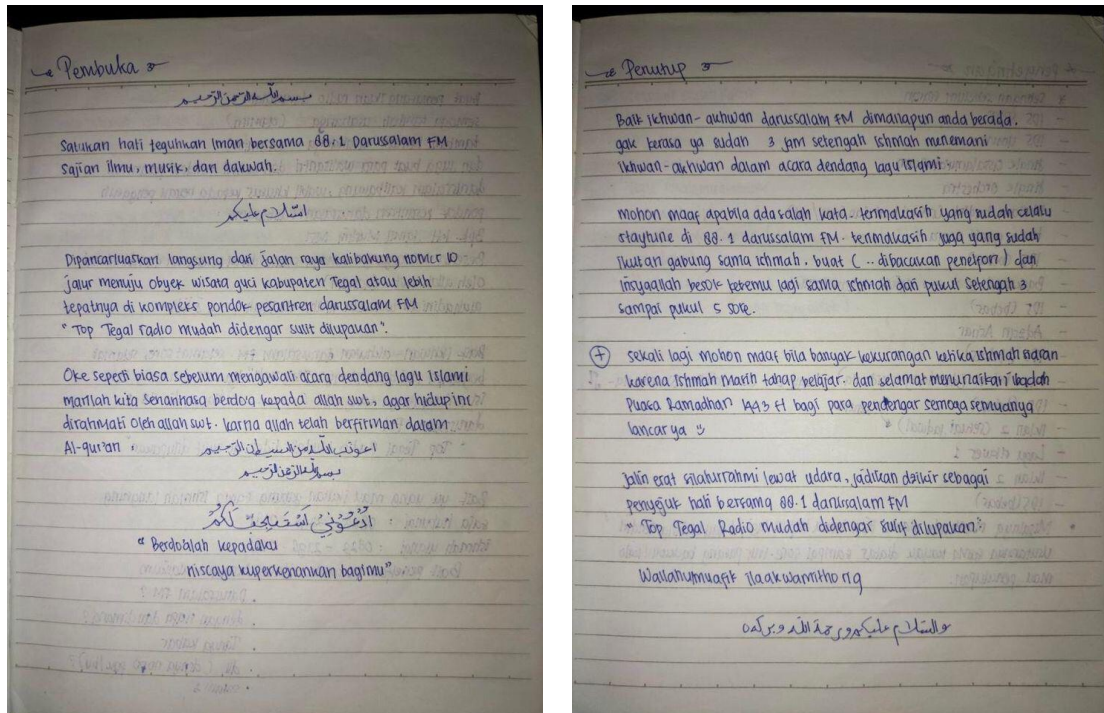 Pembuka
بسم الله الرحمن الرحيم
Satukan hati teguhkan iman bersama 88.1 Darussalam FM
Sajian ilmu, musik, dan dakwah.
السلام عليكم
Dipancarluaskan langsung dari jalan raya kalibakung nomer 10
jalur menuju obyek wisata guci kabupaten Tegal atau lebih
tepatnya di kompleks pondok pesantren darussalam FM
" Top Tegal radio mudah didengar sulit dilupakan".
Oke seperti biasa sebelum mengawali acara dendang lagu Islami
marilah kita senantiasa berdoa kepada allah swt, agar hidup ini
dirahmati oleh allah swt. karna allah telah berfirman dalam
Al-qur'an : اعوذ بالله من الشيطان الرجيم
بسم الله الرحمن الرحيم
ادْعُوْنِيْ اَسْتَجِبْ لَكُمْ
" Berdoalah kepadaku
niscaya kuperkenankan bagimu"
Penutup
Baik Ikhwan-akhwan darussalam FM dimanapun anda berada.
gak kerasa ya sudah 3 jam setengah Ishmah menemani
Ikhwan-akhwan dalam acara dendang lagu Islami
mohon maaf apabila ada salah kata. terimakasih yang sudah selalu
staytune di 88.1 darussalam FM. terimakasih juga yang sudah
ikutan gabung sama ishmah. buat ( .. dibacakan penelfon ) dan
insyaallah besok ketemu lagi sama ishmah dari pukul setengah 3
sampai pukul 5 sore.
+ sekali lagi mohon maaf bila banyak kekurangan ketika Ishmah siaran
karena Ishmah masih tahap belajar. dan selamat menunaikan ibadah
Puasa Ramadhan 1443 H bagi para pendengar semoga semuanya
lancar ya
Jalin erat silaturrahmi lewat udara, jadikan dzikir sebagai
penyejuk hati bersama 88.1 darussalam FM
" Top Tegal Radio mudah didengar sulit dilupakan"
Wallahulmuafik ilaakwamithoriq
والسلام عليكم ورحمة الله وبركاته